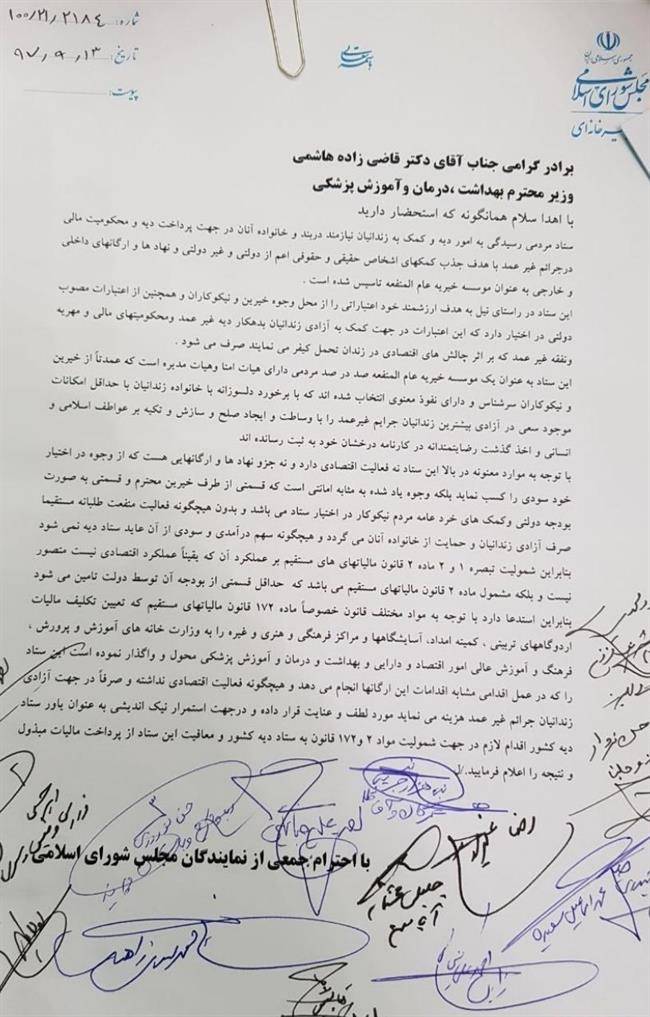 شماره: ۱۰۰/۲۱/۲۱۸۴
تاریخ: ۹۷/۹/۱۳
پیوست:
جمهوری اسلامی ایران
مجلس شورای اسلامی
برادر گرامی جناب آقای دکتر قاضی زاده هاشمی
وزیر محترم بهداشت ،درمان وآموزش پزشکی
با اهدا سلام همانگونه که استحضار دارید
ستاد مردمی رسیدگی به امور دیه و کمک به زندانیان نیازمند دربند و خانواده آنان در جهت پرداخت دیه و محکومیت مالی
درجرائم غیر عمد با هدف جذب کمکهای اشخاص حقیقی و حقوقی اعم از دولتی و غیر دولتی و نهاد ها و ارگانهای داخلی
و خارجی به عنوان موسسه خیریه عام المنفعه تاسیس شده است .
این ستاد در راستای نیل به هدف ارزشمند خود اعتباراتی را از محل وجوه خیرین و نیکوکاران و همچنین از اعتبارات مصوب
دولتی در اختیار دارد که این اعتبارات در جهت کمک به آزادی زندانیان بدهکار دیه غیر عمد ومحکومیتهای مالی و مهریه
ونفقه غیر عمد که بر اثر چالش های اقتصادی در زندان تحمل کیفر می نمایند صرف می شود .
این ستاد به عنوان یک موسسه خیریه عام المنفعه صد در صد مردمی دارای هیات امنا وهیات مدیره است که عمدتاً از خیرین
و نیکوکاران سرشناس و دارای نفوذ معنوی انتخاب شده اند که با برخورد دلسوزانه با خانواده زندانیان با حداقل امکانات
موجود سعی در آزادی بیشترین زندانیان جرایم غیرعمد را با وساطت و ایجاد صلح و سازش و تکیه بر عواطف اسلامی و
انسانی و اخذ گذشت رضایتمندانه در کارنامه درخشان خود به ثبت رسانده اند
با توجه به موارد معنونه در بالا این ستاد نه فعالیت اقتصادی دارد و نه جزو نهاد ها و ارگانهایی هست که از وجوه در اختیار
خود سودی را کسب نماید بلکه وجوه یاد شده به مثابه امانتی است که قسمتی از طرف خیرین محترم و قسمتی به صورت
بودجه دولتی وکمک های خرد عامه مردم نیکوکار در اختیار ستاد می باشد و بدون هیچگونه فعالیت منفعت طلبانه مستقیما
صرف آزادی زندانیان و حمایت از خانواده آنان می گردد و هیچگونه سهم درآمدی و سودی از آن عاید ستاد دیه نمی شود
بنابراین شمولیت تبصره ۱ و ۲ ماده ۲ قانون مالیاتهای های مستقیم بر عملکرد آن که یقیناً عملکرد اقتصادی نیست متصور
نیست و بلکه مشمول ماده ۲ قانون مالیاتهای مستقیم می باشد که حداقل قسمتی از بودجه آن توسط دولت تامین می شود
بنابراین استدعا دارد با توجه به مواد مختلف قانون خصوصاً ماده ۱۷۲ قانون مالیاتهای مستقیم که تعیین تکلیف مالیات
اردوگاههای تربیتی ، کمیته امداد، آسایشگاهها و مراکز فرهنگی و هنری و غیره را به وزارت خانه های آموزش و پرورش ،
فرهنگ و آموزش عالی امور اقتصاد و دارایی و بهداشت و درمان و آموزش پزشکی محول و واگذار نموده است این ستاد
را که در عمل اقدامی مشابه اقدامات این ارگانها انجام می دهد و هیچگونه فعالیت اقتصادی نداشته و صرفاً در جهت آزادی
زندانیان جرائم غیر عمد هزینه می نماید مورد لطف و عنایت قرار داده و درجهت استمرار نیک اندیشی به عنوان یاور ستاد
دیه کشور اقدام لازم در جهت شمولیت مواد ۲ و۱۷۲ قانون به ستاد دیه کشور و معافیت این ستاد از پرداخت مالیات مبذول
و نتیجه را اعلام فرمایید./
با احترام جمعی از نمایندگان مجلس شورای اسلامی